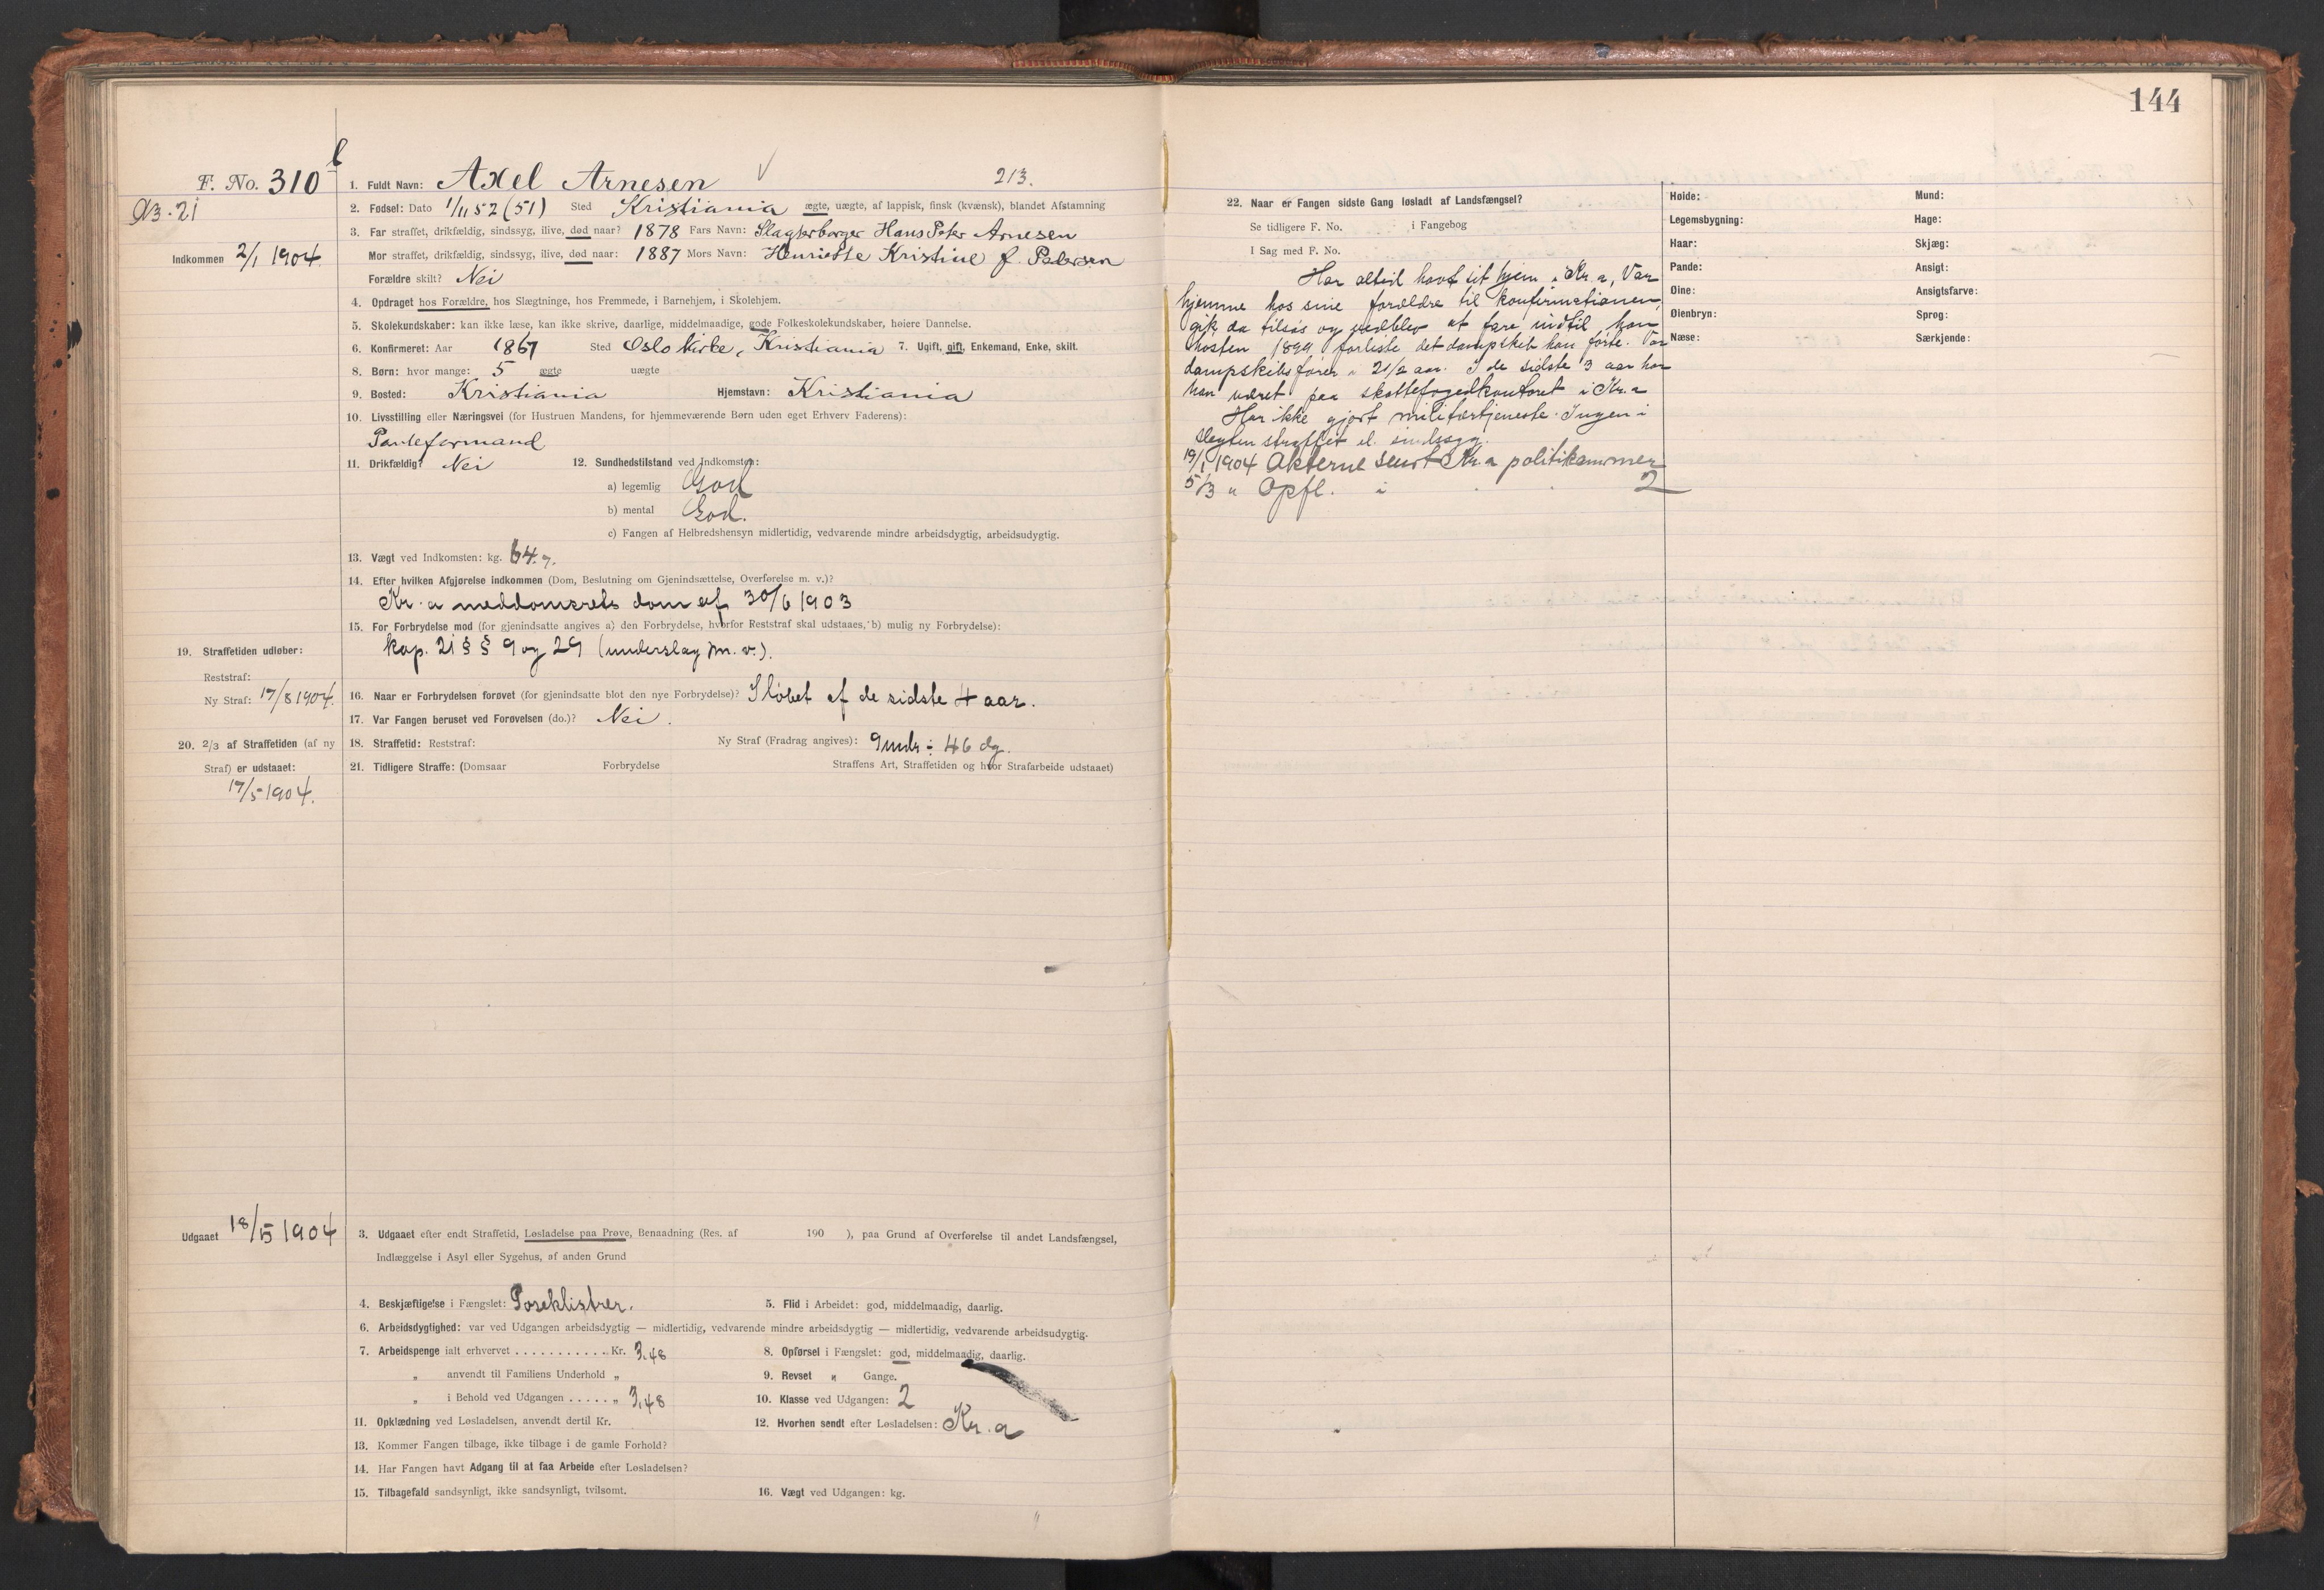 144
F. No. 310 b
N3. 21
Indkommen 2/1 1904.
1. Fuldt Navn: Axel Arnesen 213.
2. Fødsel: Dato 1/11 52 (51) Sted Kristiania ægte, uægte, af lappisk, finsk (kvænsk), blandet Afstamning
3. Far straffet, drikfældig, sindssyg, ilive, død naar? 1878 Fars Navn: Slagterborger Hans Peter Arnesen
Mor straffet, drikfældig, sindssyg, ilive, død naar: 1887 Mors Navn: Henriette Kristine f. Petersen
Forældre skilt? Nei
4. Opdraget hos Forældre, hos Slægtninge, hos Fremmede, i Barnehjem, i Skolehjem.
5. Skolekundskaber: kan ikke læse, kan ikke skrive, daarlige, middelmaadige, gode Folkeskolekundskaber, høiere Dannelse.
6. Konfirmeret: Aar 1867 Sted Oslo Kirke, Kristiania 7. Ugift, gift, Enkemand, Enke, skilt.
8. Børn: hvor mange: 5 ægte uægte
9. Bosted: Kristiania Hjemstavn: Kristiania
10. Livsstilling eller Næringsvei (for Hustruen Mandens, for hjemmeværende Børn uden eget Erhverv Faderens):
Panteformand
11. Drikfældig? Nei 12. Sundhedstilstand ved Indkomsten:
a) legemlig God
b) mental God.
c) Fangen af Helbredshensyn midlertidig, vedvarende mindre arbeidsdygtig, arbeidsudygtig.
13. Vægt ved Indkomsten: kg. 64.7.
14. Efter hvilken Afgjørelse indkommen (Dom, Beslutning om Gjenindsættelse, Overførelse m. v.)?
Kr.a meddomsrets dom af 30/6 1903
15. For Forbrydelse mod (for gjenindsatte angives a) den Forbrydelse, hvorfor Reststraf skal udstaaes, b) mulig ny Forbrydelse):
kap. 21 § § 9 og 29 (underslag m. v.).
19. Straffetiden udløber:
Reststraf:
Ny Straf: 17/8 1904.
16. Naar er Forbrydelsen forøvet (for gjenindsatte blot den nye Forbrydelse)? I løbet af de sidste 4 aar.
17. Var Fangen beruset ved Forøvelsen (do.)? Nei.
20. 2/3 af Straffetiden (af ny
Straf) er udstaaet:
17/5 1904.
18. Straffetid: Reststraf: Ny Straf (Fradrag angives): 9 mdr ÷ 46 dg.
21. Tidligere Straffe: (Domsaar Forbrydelse Straffens Art, Straffetiden og hvor Strafarbeide udstaaet)
Udgaaet 18/5 1904
3. Udgaaet efter endt Straffetid, Løsladelse paa Prøve, Benaadning (Res. af 190 ), paa Grund af Overførelse til andet Landsfængsel,
Indlæggelse i Asyl eller Sygehus, af anden Grund
4. Beskjæftigelse i Fængslet: Poseklistrer. 5. Flid i Arbeidet: god, middelmaadig, daarlig.
6. Arbeidsdygtighed: var ved Udgangen arbeidsdygtig — midlertidig, vedvarende mindre arbeidsdygtig — midlertidig, vedvarende arbeidsudygtig.
7. Arbeidspenge ialt erhvervet . . . . . . . . . . . Kr. 3.48 8. Opførsel i Fængslet: god, middelmaadig, daarlig.
„ anvendt til Familiens Underhold „ 9. Revset „ Gange.
„ i Behold ved Udgangen . . . . . „ 3,48 10. Klasse ved Udgangen: 2
11. Opklædning ved Løsladelsen, anvendt dertil Kr. 12. Hvorhen sendt efter Løsladelsen: Kr.a
13. Kommer Fangen tilbage, ikke tilbage i de gamle Forhold?
14. Har Fangen havt Adgang til at faa Arbeide efter Løsladelsen?
15. Tilbagefald sandsynligt, ikke sandsynligt, tvilsomt. 16. Vægt ved Udgangen: kg.
22. Naar er Fangen sidste Gang løsladt af Landsfængsel?
Se tidligere F. No. i Fangebog
I Sag med F. No.
Har altid havt sit hjem i Kr.a, Var
hjemme hos sine forældre til konfirmationen,
gik da tilsjøs og vedblev at fare indtil han
høsten 1899 forliste det dampskib han førte. Var
dampskibsfører i 21/2 aar. I de sidste 3 aar har
han været paa skattefogedkontoret i Kr.a
Har ikke gjort militærtjeneste. Ingen i
slegten straffet el. sindssyg.
19/1 1904 Akterne sendt Kr.a politikammer
5/3 " Opfl. i . . 2
Høide: Mund:
Legemsbygning: Hage:
Haar: Skjæg:
Pande: Ansigt:
Øine: Ansigtsfarve:
Øienbryn: Sprog:
Næse: Særkjende: